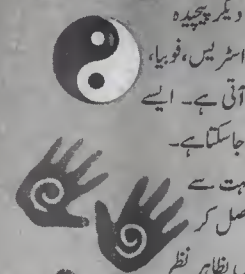 دیگر پیچیدہ
اسٹریس، فوبیا،
آتی ہے۔ ایسے
جاسکتا ہے۔
بہت سے
صل کر
بظاہر نظر